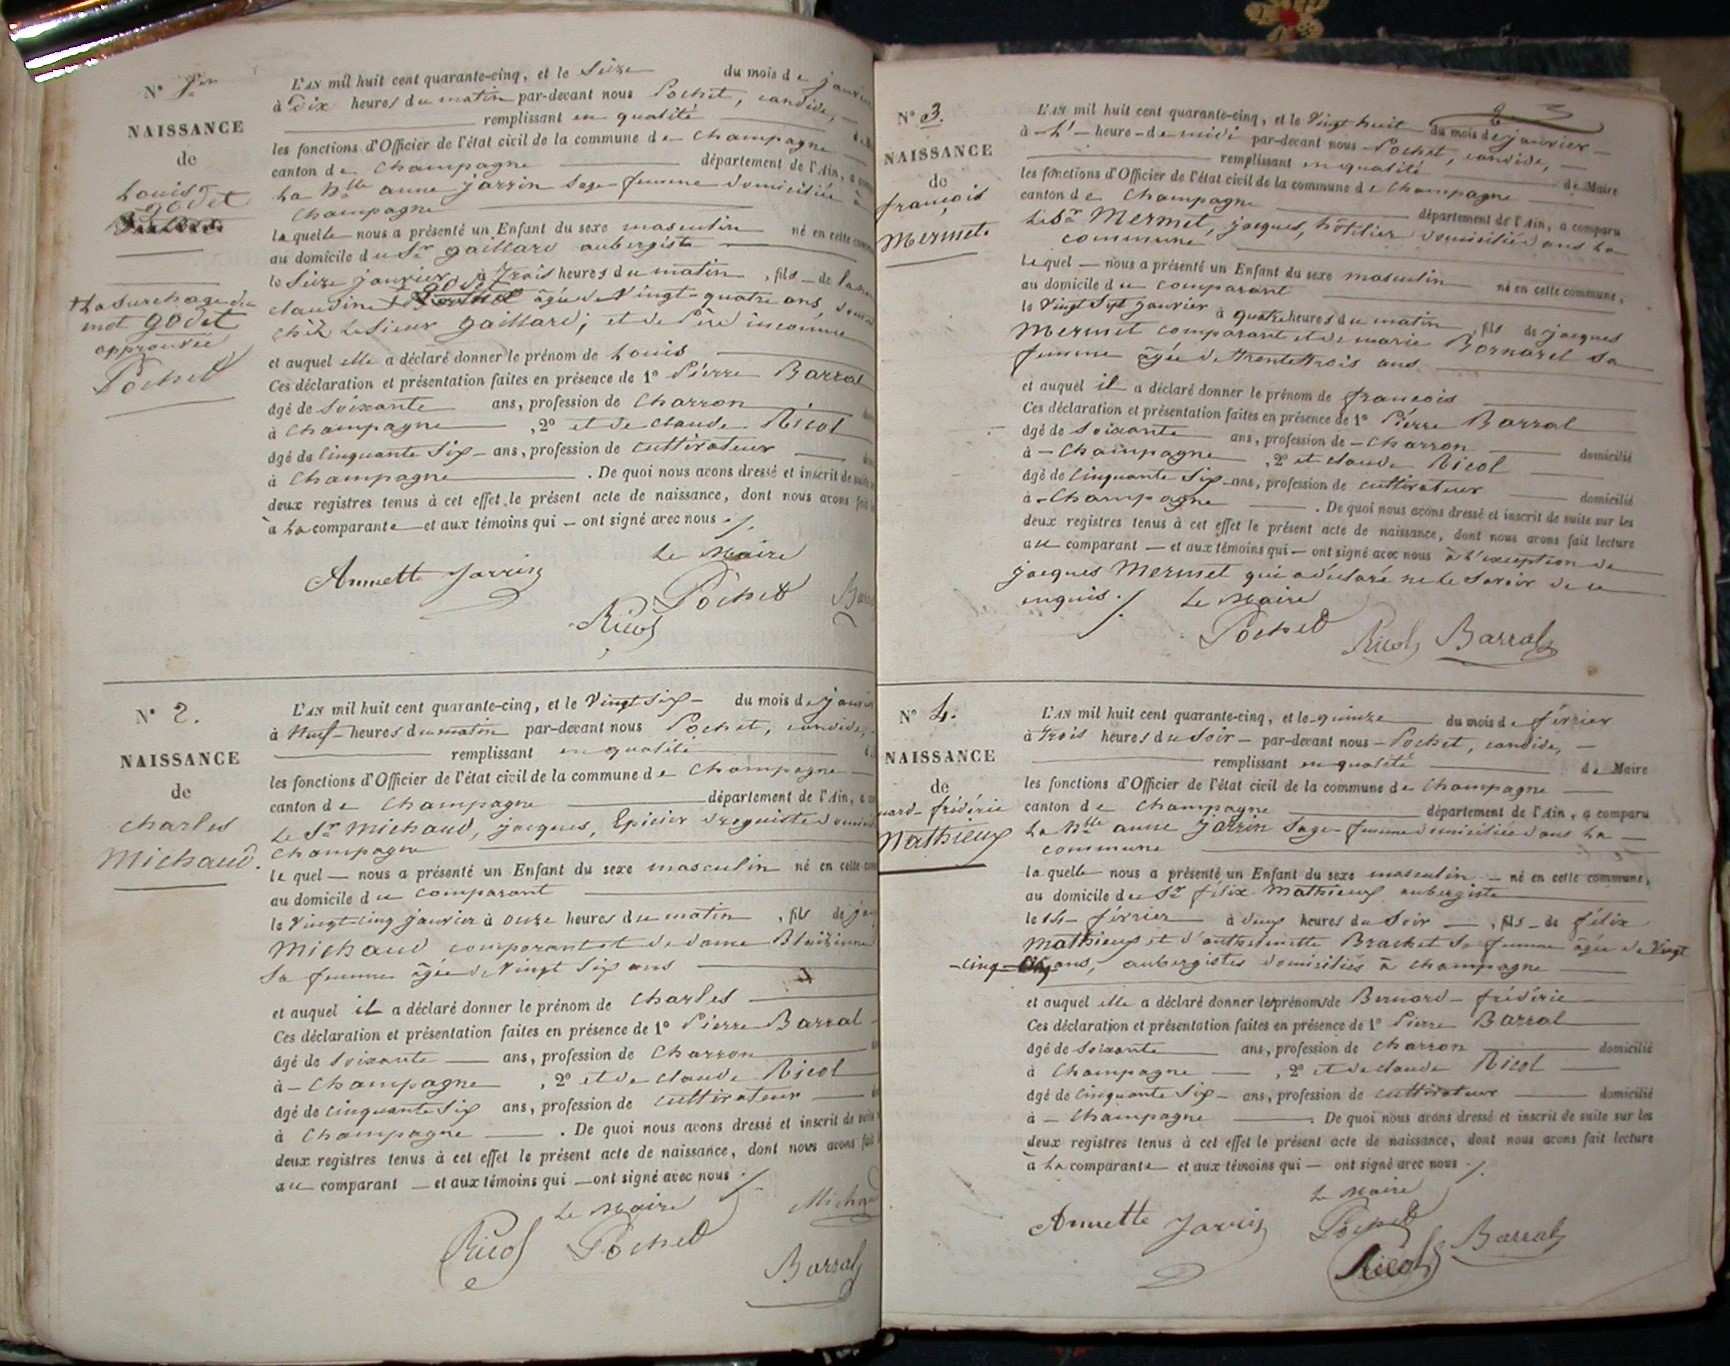 N° 1er
NAISSANCE
de
Louis
godet
+ la surchage du
mot godet
approuvée
Pochet
L'AN mil huit cent quarante-cinq, et le Seize du mois de janvier
à Dix heures du matin par-devant nous Pochet, candide,
remplissant en qualité
les fonctions d'Officier de l'état civil de la commune de Champagne
canton de Champagne département de l'Ain, a
La Dlle anne Jarrin Sage-femme domiciliée à
Champagne
laquelle nous a présenté un Enfant du sexe masculin né en cette
au domicile du Sr gaillard aubergiste
le Seize janvier à trois heures du matin, fils de la
claudine godet âgée de Vingt-quatre ans,
chéz Le Sieur gaillard; et de Père inconnu
et auquel elle a déclaré donner le prénom de Louis
Ces déclaration et présentation faites en présence de 1° Pierre Barral
âgé de Soixante ans, profession de Charron
à Champagne , 2° et de claude Ricol
âgé de Cinquante Six ans, profession de cultivateur
à Champagne . De quoi nous avons dressé et inscrit de suite
deux registres tenus à cet effet le présent acte de naissance, dont nous avons fait
à La comparante et aux témoins qui ont signé avec nous ./.
Le Maire
Annette Jarrin
Pochet
Ricol
N° 2.
NAISSANCE
de
Charles
Michaud.
L'AN mil huit cent quarante-cinq, et le Vingt Six du mois de janvier
à Neuf heures du matin par-devant nous Pochet, candide,
remplissant en qualité
les fonctions d'Officier de l'état civil de la commune de Champagne
canton de Champagne département de l'Ain, a
Le Sr Michaud, jacques, Epicier droguiste
Champagne
le quel nous a présenté un Enfant du sexe masculin né en cette
au domicile du comparant
le Vingt Cinq janvier à onze heures du matin , fils de
Michaud comparant et de dame
Sa femme âgée de Vingt Six ans
et auquel il a déclaré donner le prénom de Charles
Ces déclaration et présentation faites en présence de 1° Pierre Barral
âgé de Soixante ans, profession de Charron
à Champagne , 2° et de claude Ricol
âgé de Cinquante Six ans, profession de cultivateur
à Champagne . De quoi nous avons dressé et inscrit de suite
deux registres tenus à cet effet le présent acte de naissance, dont nous avons fait
au comparant et aux témoins qui ont signé avec nous ./.
Le Maire
Ricol Pochet
Barral
N° 3.
NAISSANCE
de
françois
Mermet.
L'AN mil huit cent quarante-cinq, et le Vingt huit du mois de janvier
à heure de midi par-devant nous Pochet, candide,
remplissant en qualité de Maire
les fonctions d'Officier de l'état civil de la commune de Champagne
canton de Champagne département de l'Ain, a comparu
Le Sr Mermet, jacques, hôtelier domicilié dans La
commune
le quel nous a présenté un Enfant du sexe masculin né en cette commune,
au domicile du comparant
le Vingt Sept janvier à quatre heures du matin , fils de jacques
Mermet comparant et de marie Bornarel Sa
femme âgée de trente trois ans
et auquel il a déclaré donner le prénom de françois
Ces déclaration et présentation faites en présence de 1° Pierre Barral
âgé de Soixante ans, profession de Charron domicilié
à Champagne , 2° et claude Ricol
âgé de Cinquante Six ans, profession de cultivateur domicilié
à Champagne . De quoi nous avons dressé et inscrit de suite sur les
deux registres tenus à cet effet le présent acte de naissance, dont nous avons fait lecture
au comparant et aux témoins qui ont signé avec nous à l'exception de
jacques Mermet qui a déclaré ne le Savoir de ce
enquis ./. Le Maire
Pochet Ricol Barral
N° 4.
NAISSANCE
de
frédéric
Mathieux
L'AN mil huit cent quarante-cinq, et le quinze du mois de février
à trois heures du Soir par-devant nous Pochet, candide,
remplissant en qualité de Maire
les fonctions d'Officier de l'état civil de la commune de Champagne
canton de Champagne département de l'Ain, a comparu
La Dlle anne Jarrin Sage-femme domiciliée dans La
commune
la quelle nous a présenté un Enfant du sexe masculin né en cette commune,
au domicile du Sr félix Mathieux aubergiste
le 14 février à deux heures du Soir , fils de félix
Mathieux et d'anthelmette Brachet Sa femme âgée de Vingt
cinq ans, aubergistes domiciliés à Champagne
et auquel elle a déclaré donner les prénoms de Bernard frédéric
Ces déclaration et présentation faites en présence de 1° Pierre Barral
âgé de Soixante ans, profession de Charron domicilié
à Champagne , 2° et de claude Ricol
âgé de Cinquante Six ans, profession de cultivateur domicilié
à Champagne . De quoi nous avons dressé et inscrit de suite sur les
deux registres tenus à cet effet le présent acte de naissance, dont nous avons fait lecture
à La comparante et aux témoins qui ont signé avec nous ./.
Le Maire
Annette Jarrin Pochet Barral
Ricol